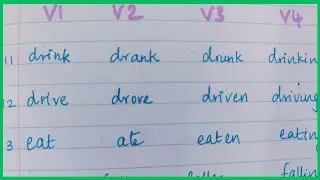 V1 V2 V3 V4
11 drink drank drunk drinkin
12 drive drove driven driving
3 eat ate eaten eatin
fallin